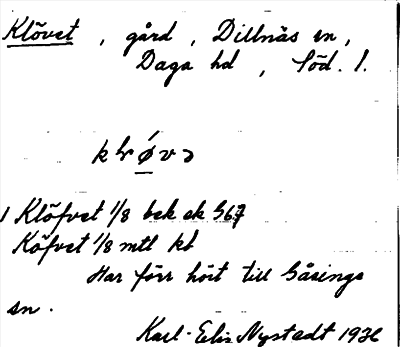 Klövet, gård, Dillnäs sn,
Daga hd, Söd. l.
1 Klöfvet 1/8 bek ek 567
Köfvet 1/8 mtl kt
Har förr hört till Gåsinge
sn.
Karl-Elis Nystedt 1936